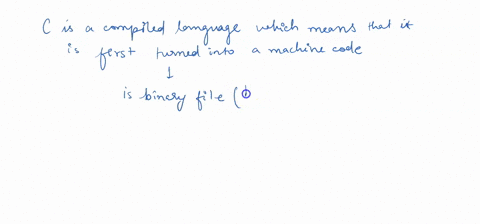 C is a compiled language which means that it
is first turned into a machine code
↓
is binary file (